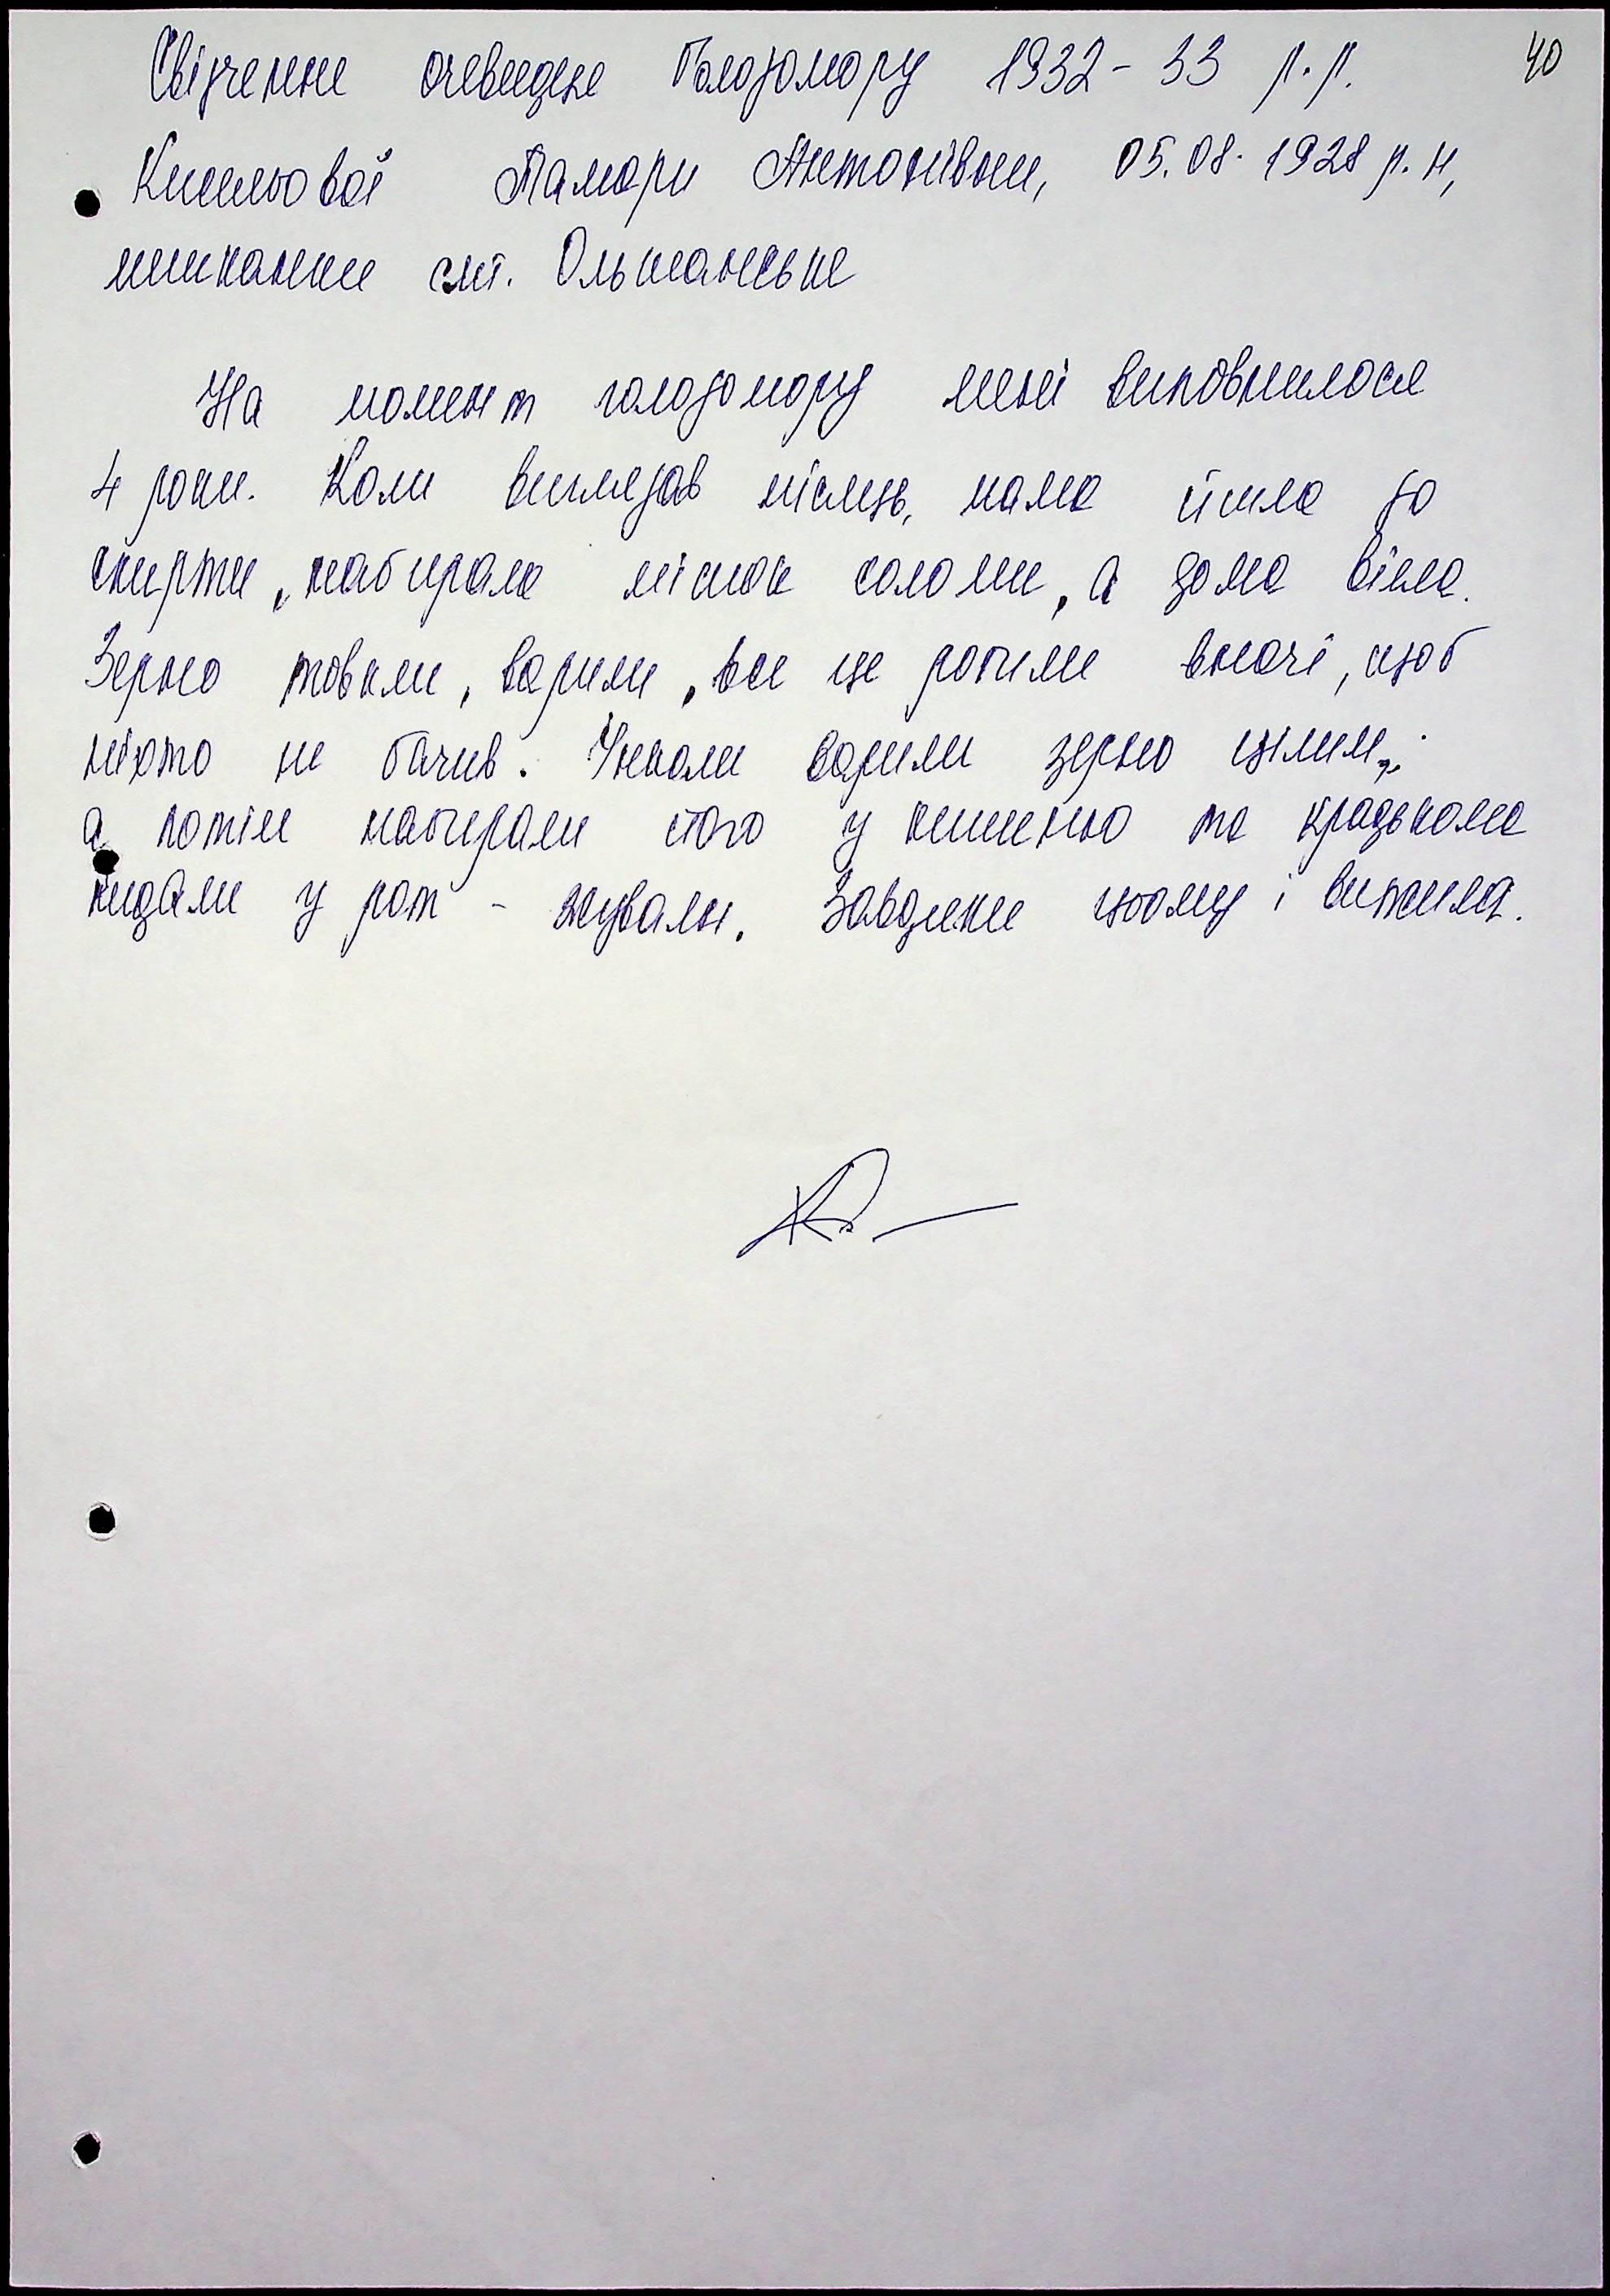 Свідчення очевидця Голодомору 1932-33 р.р. 40
Кисильової Тамари Антонівни, 05.08.1928 р.н,
мешканки смт. Ольшанське
На момент голодомору мені виповнилося
4 роки. Коли виглядав місяць, мама йшла до
скирти, набирала мішок соломи, а дома віяла.
Зерно товкли, варили, все це робили вночі, щоб
ніхто не бачив. Інколи варили зерно цілим,
а потім набирали його у кишеню та крадькома
кидали у рот - жували. Завдяки цьому і вижила.